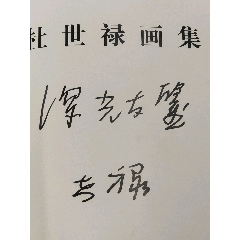 杜世禄画集
光友鉴
世禄